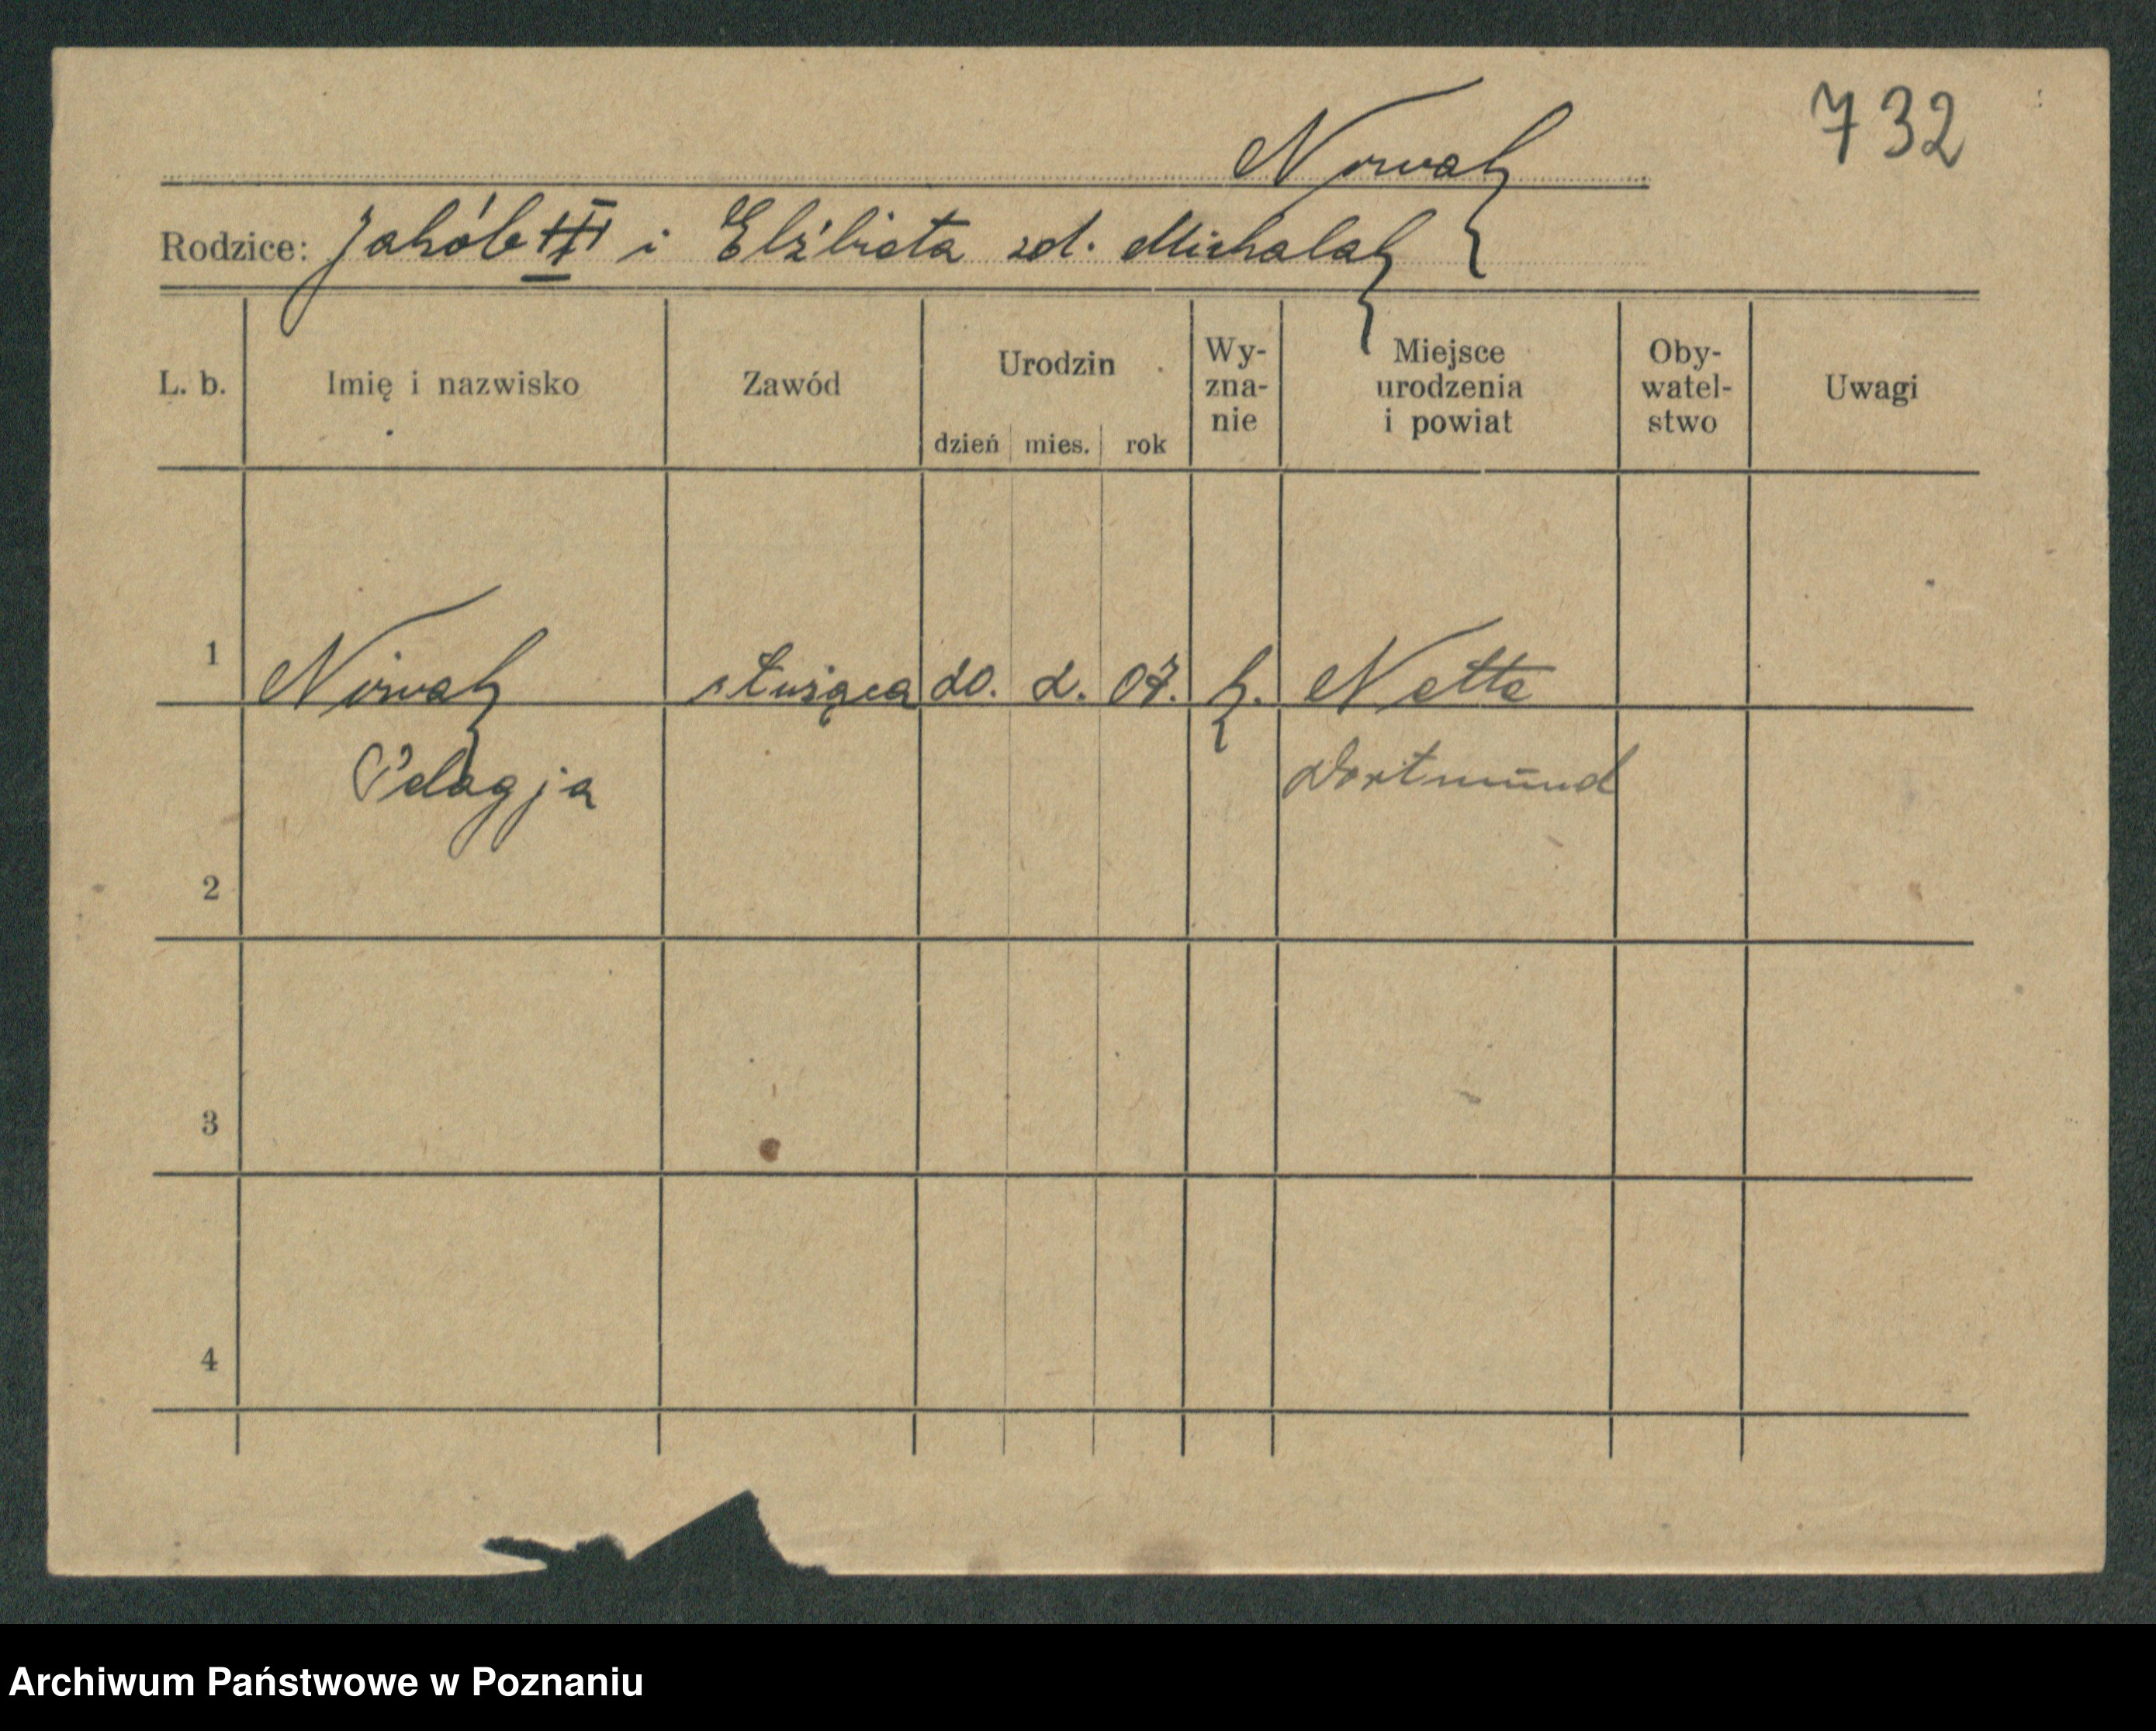 732
Nowak
Rodzice: Jakób i Elżbieta zd. Michalak
L. b. Imię i nazwisko Zawód Urodzin dzień mies. rok Wy-zna-nie Miejsce urodzenia i powiat Oby-watel-stwo Uwagi
1 Nowak służąca 20. 2. 07. k. Nette
Pelagja Dortmund
2
3
4
Archiwum Państwowe w Poznaniu